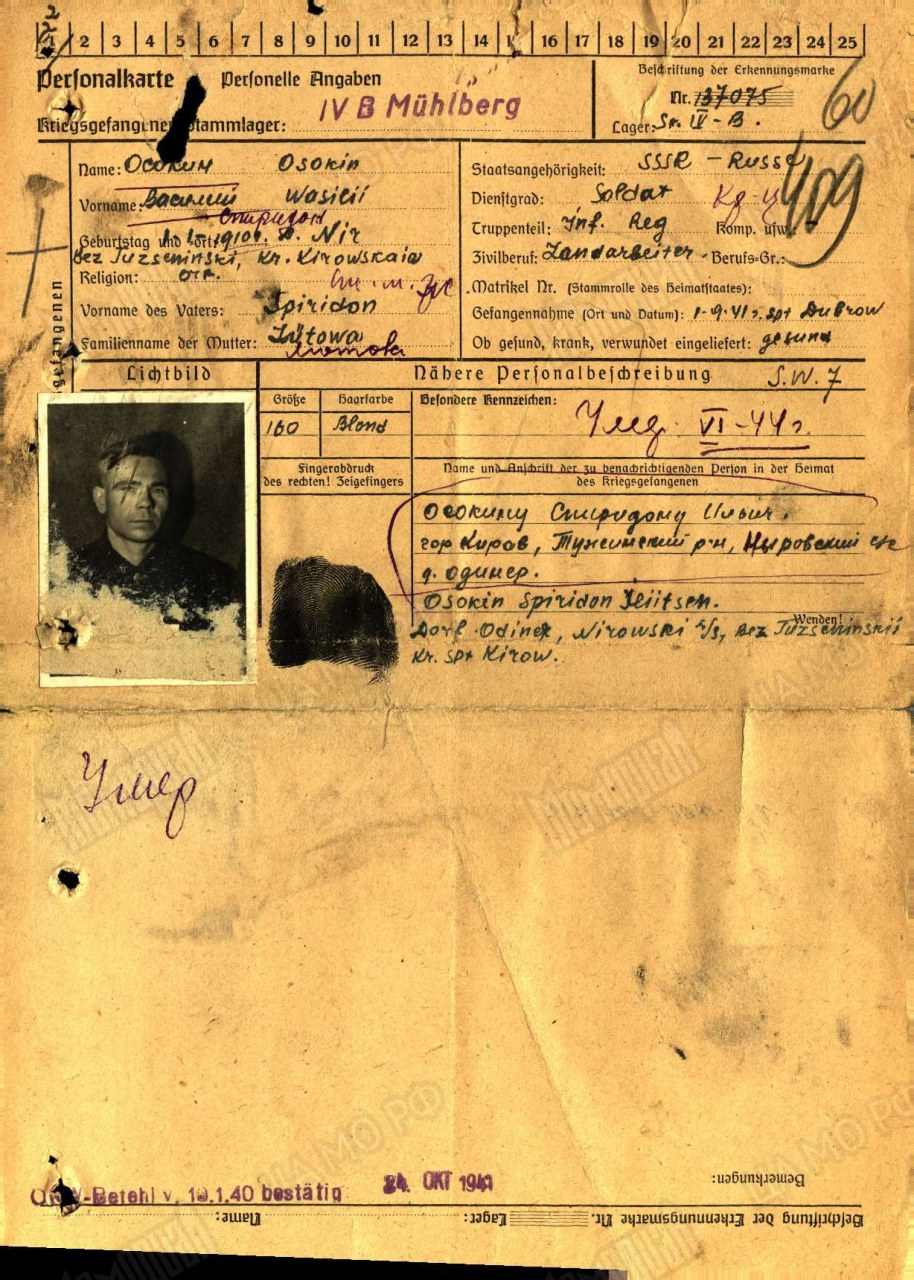 2 3 4 5 6 7 8 9 10 11 12 13 14 16 17 18 19 20 21 22 23 24 25
Personalkarte Personelle Angaben
Beschriftung der Erkennungsmarke
Nr. 137075
60
Kriegsgefangenen-Stammlager: IV B Mühlberg
Lager: IV-B.
Name: Осокин Osokin
Vorname: Василий Wasilii
Спиридон
Geburtstag und -ort: Nir
Bez Tuzseninski, Kr. Kirowskaia
Religion: ort.
Vorname des Vaters: Spiridon
Familienname der Mutter: Lütowa
Staatsangehörigkeit: SSSR - Russe
Dienstgrad: Soldat
409
Truppenteil: Inf. Reg Komp. usw.:
Zivilberuf: Landarbeiter. Berufs-Gr.:
Matrikel Nr. (Stammrolle des Heimatstaates):
Gefangennahme (Ort und Datum): 1.9.41 Dubrow
Ob gesund, krank, verwundet eingeliefert: gesund
gefangenen
Lichtbild
Nähere Personalbeschreibung S.W. 7
Größe Haarfarbe Besondere Kennzeichen:
160 Blond
Умер VI-44г.
Fingerabdruck
des rechten! Zeigefingers
Name und Anschrift der zu benachrichtigenden Person in der Heimat
des Kriegsgefangenen
Осокину Спиридону Ильич.
гор Киров, Тужинский р-н, Ныровский с/с
д. Одинер.
Osokin Spiridon Iliitsch.
Wenden!
Dorf Odiner, Nirowski s/s, Bez Tuzseninskii
Kr. spt Kirow.
Умер
Bemerkungen:
OKW-Befehl v. 19.1.40 bestätig 24. OKT 1941
Beschriftung der Erkennungsmarke Nr. Lager: Name:
ЦАМО РФ